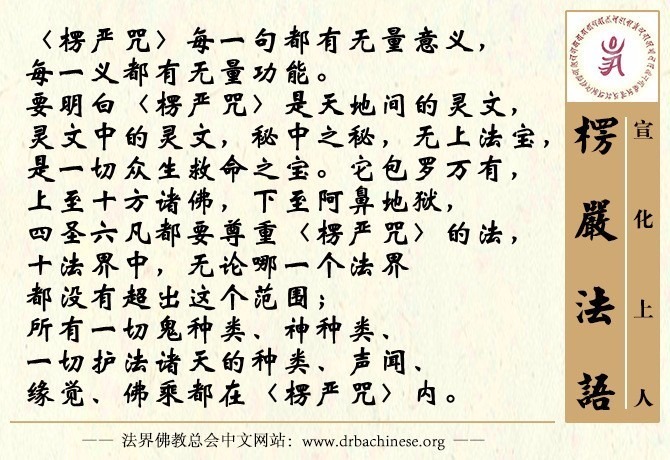 〈楞严咒〉每一句都有无量意义，
每一义都有无量功能。
要明白〈楞严咒〉是天地间的灵文，
灵文中的灵文，秘中之秘，无上法宝，
是一切众生救命之宝。它包罗万有，
上至十方诸佛，下至阿鼻地狱，
四圣六凡都要尊重〈楞严咒〉的法，
十法界中，无论哪一个法界
都没有超出这个范围；
所有一切鬼种类、神种类、
一切护法诸天的种类、声闻、
缘觉、佛乘都在〈楞严咒〉内。
楞嚴法語
宣化上人
—— 法界佛教总会中文网站：www.drbachinese.org ——